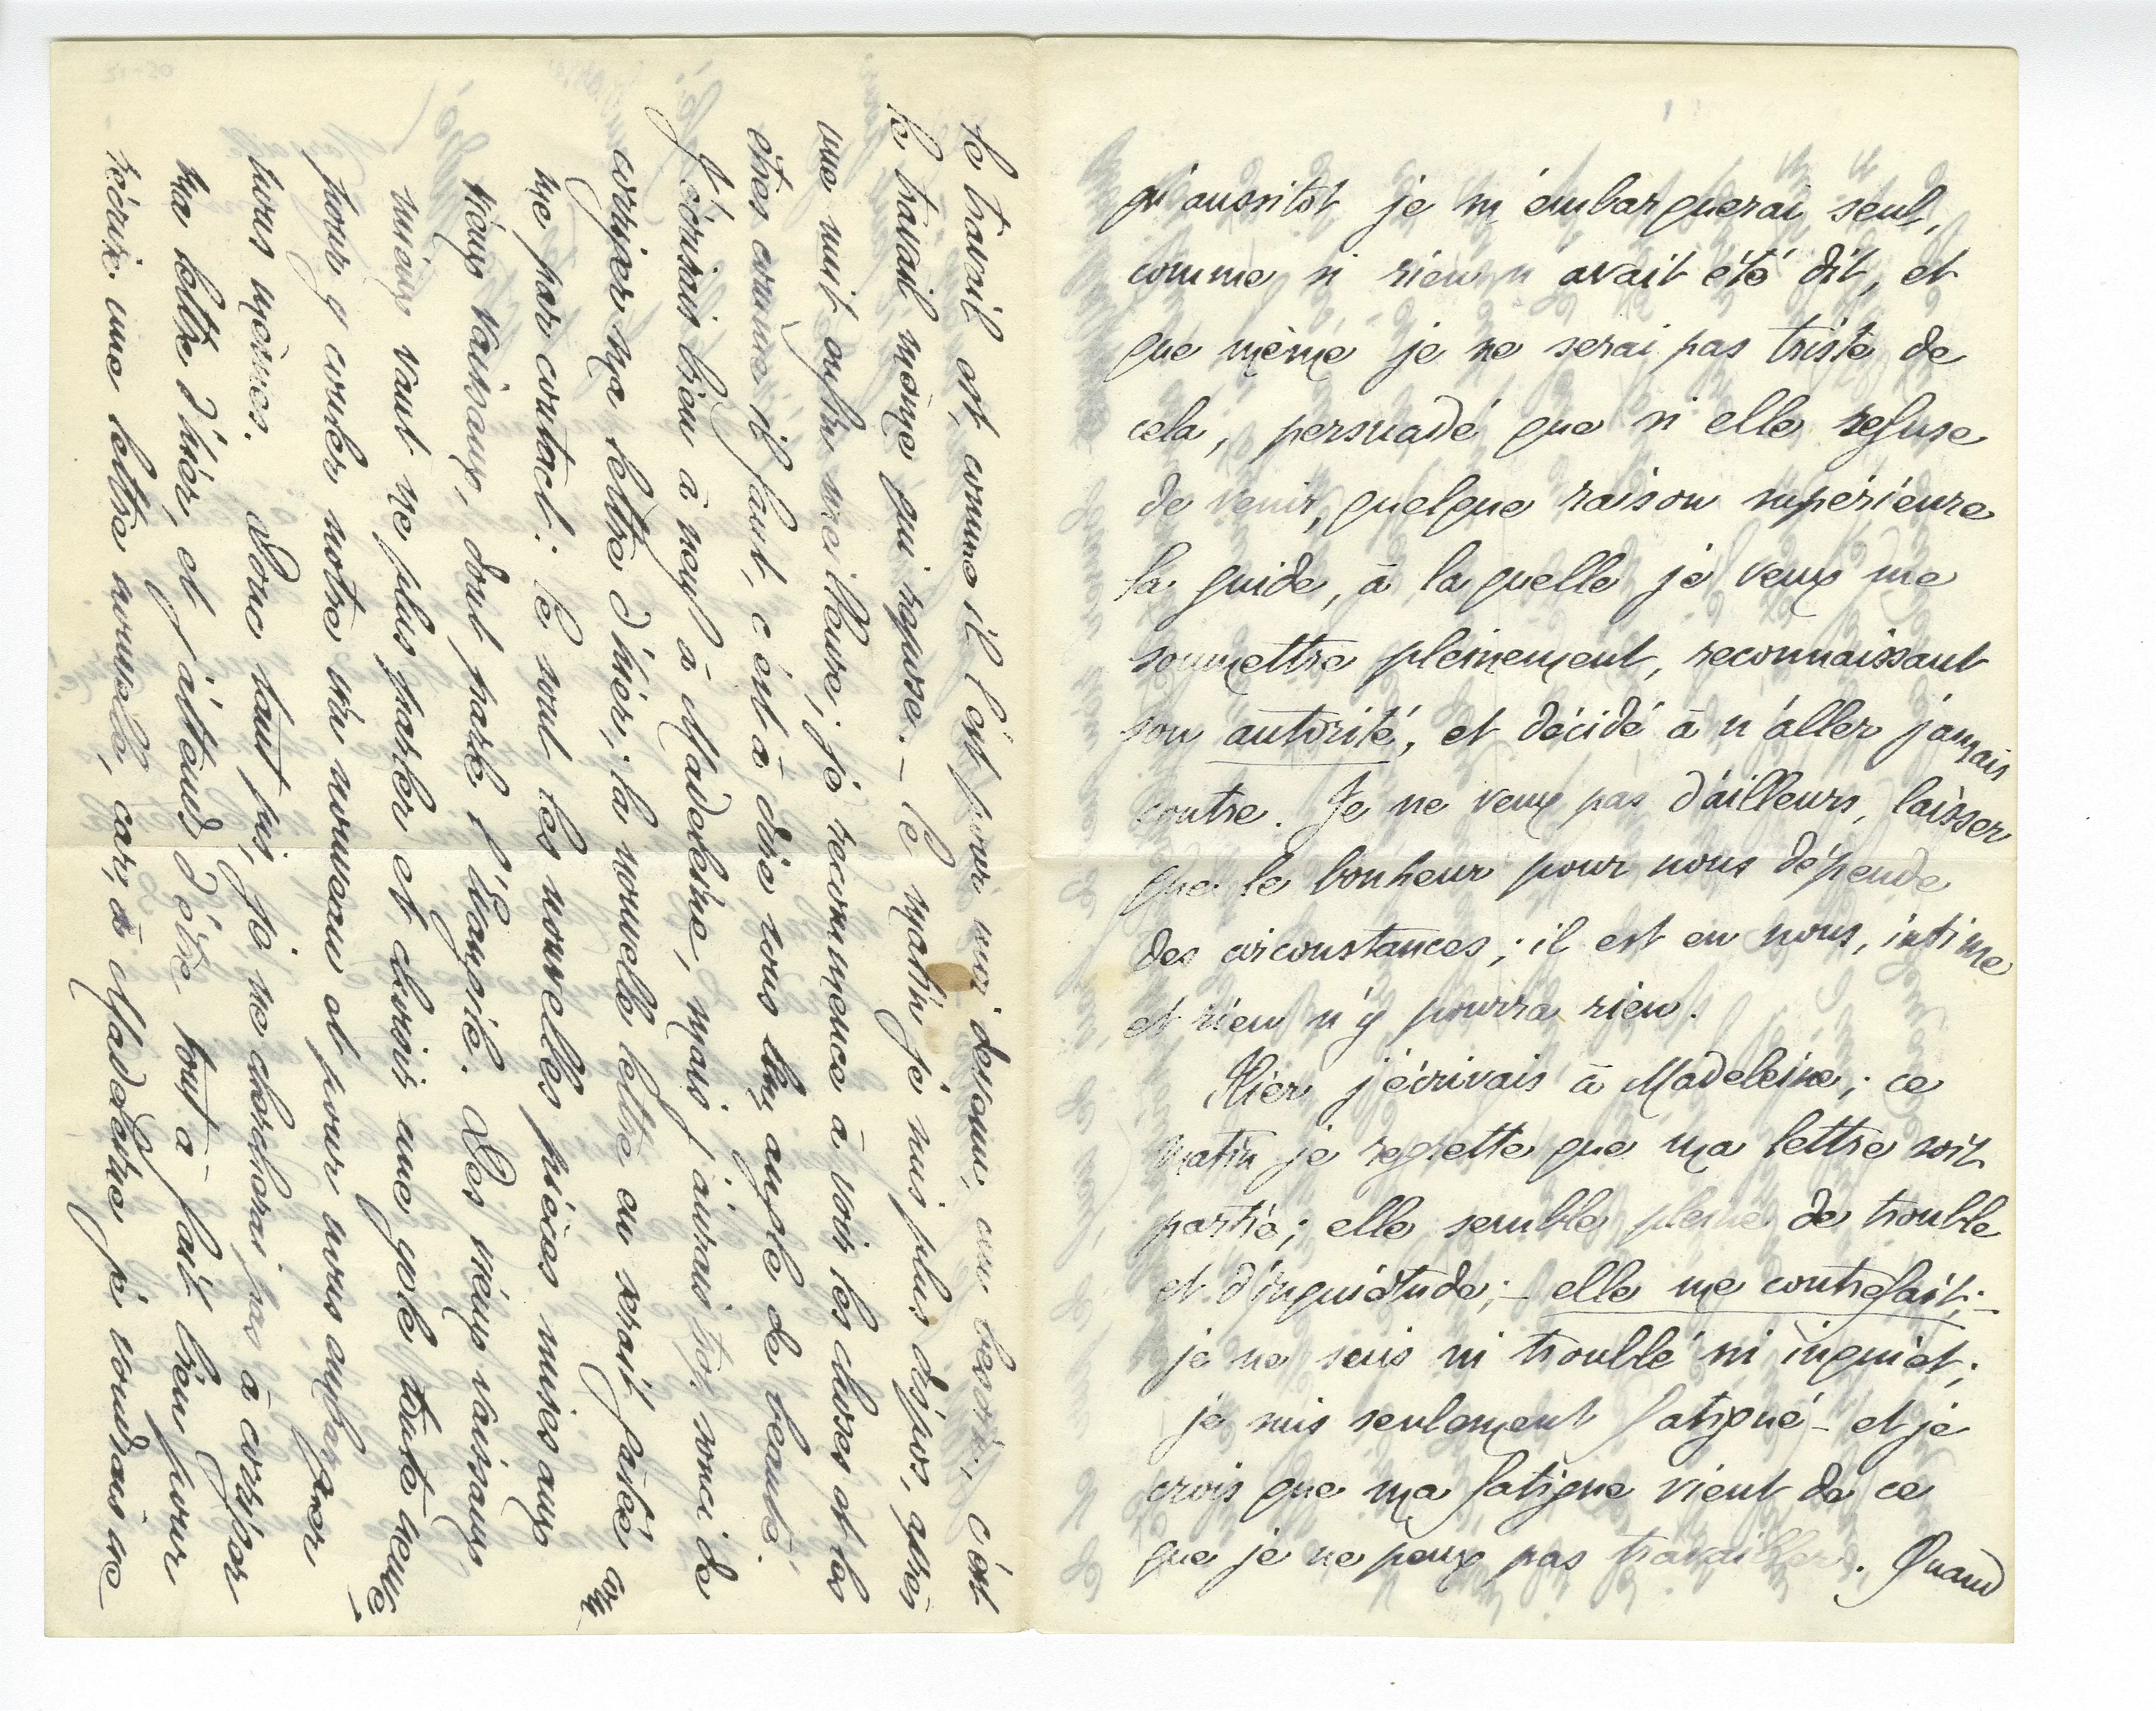 qu'aussitôt je m'embarquerai seul,
comme si rien n'avait été dit, et
que même je ne serai pas triste de
cela, persuadé que si elle refuse
de venir, quelque raison supérieure
la guide, à laquelle je veux me
soumettre pleinement, reconnaissant
son autorité, et décidé à n'aller jamais
contre. Je ne veux pas d'ailleurs, laisser
que le bonheur pour nous dépende
des circonstances; il est en nous, intime
et rien n'y pourra rien.
Hier j'écrivais à Madeleine; ce
matin je regrette que ma lettre soit
partie; elle semble pleine de trouble
et d'inquiétude; – elle me contrefait; –
je ne suis ni troublé ni inquiet;
je suis seulement fatigué – et je
crois que ma fatigue vient de ce
que je ne peux pas travailler. Quand
le travail est, comme il l'est pour moi devenu, un besoin, c'est
le travail même qui repose. – Ce matin je suis plus dispos, après
une nuit enfin meilleure; je recommence à voir les choses et les
êtres comme il faut, c'est à dire sous leur angle de beauté.
J'écrirais bien à neuf à Madeleine, mais j'aurais trop souci de
corriger ma lettre d'hier; la nouvelle lettre en serait gâtée com-
me par contact: Ce sont les nouvelles pièces mises aux
vieux vaisseaux, dont parle l'Évangile. Des vieux vaisseaux
mieux vaut ne plus parler et choisir une gole toute neuve,
pour y couler notre vin nouveau et pour nous en
nous mêmes. Donc tant pis, je ne chercherai pas à corriger
ma lettre d'hier, et j'attends d'être tout à fait bien pour
récrire une lettre nouvelle, car, à Madeleine je voudrais ne